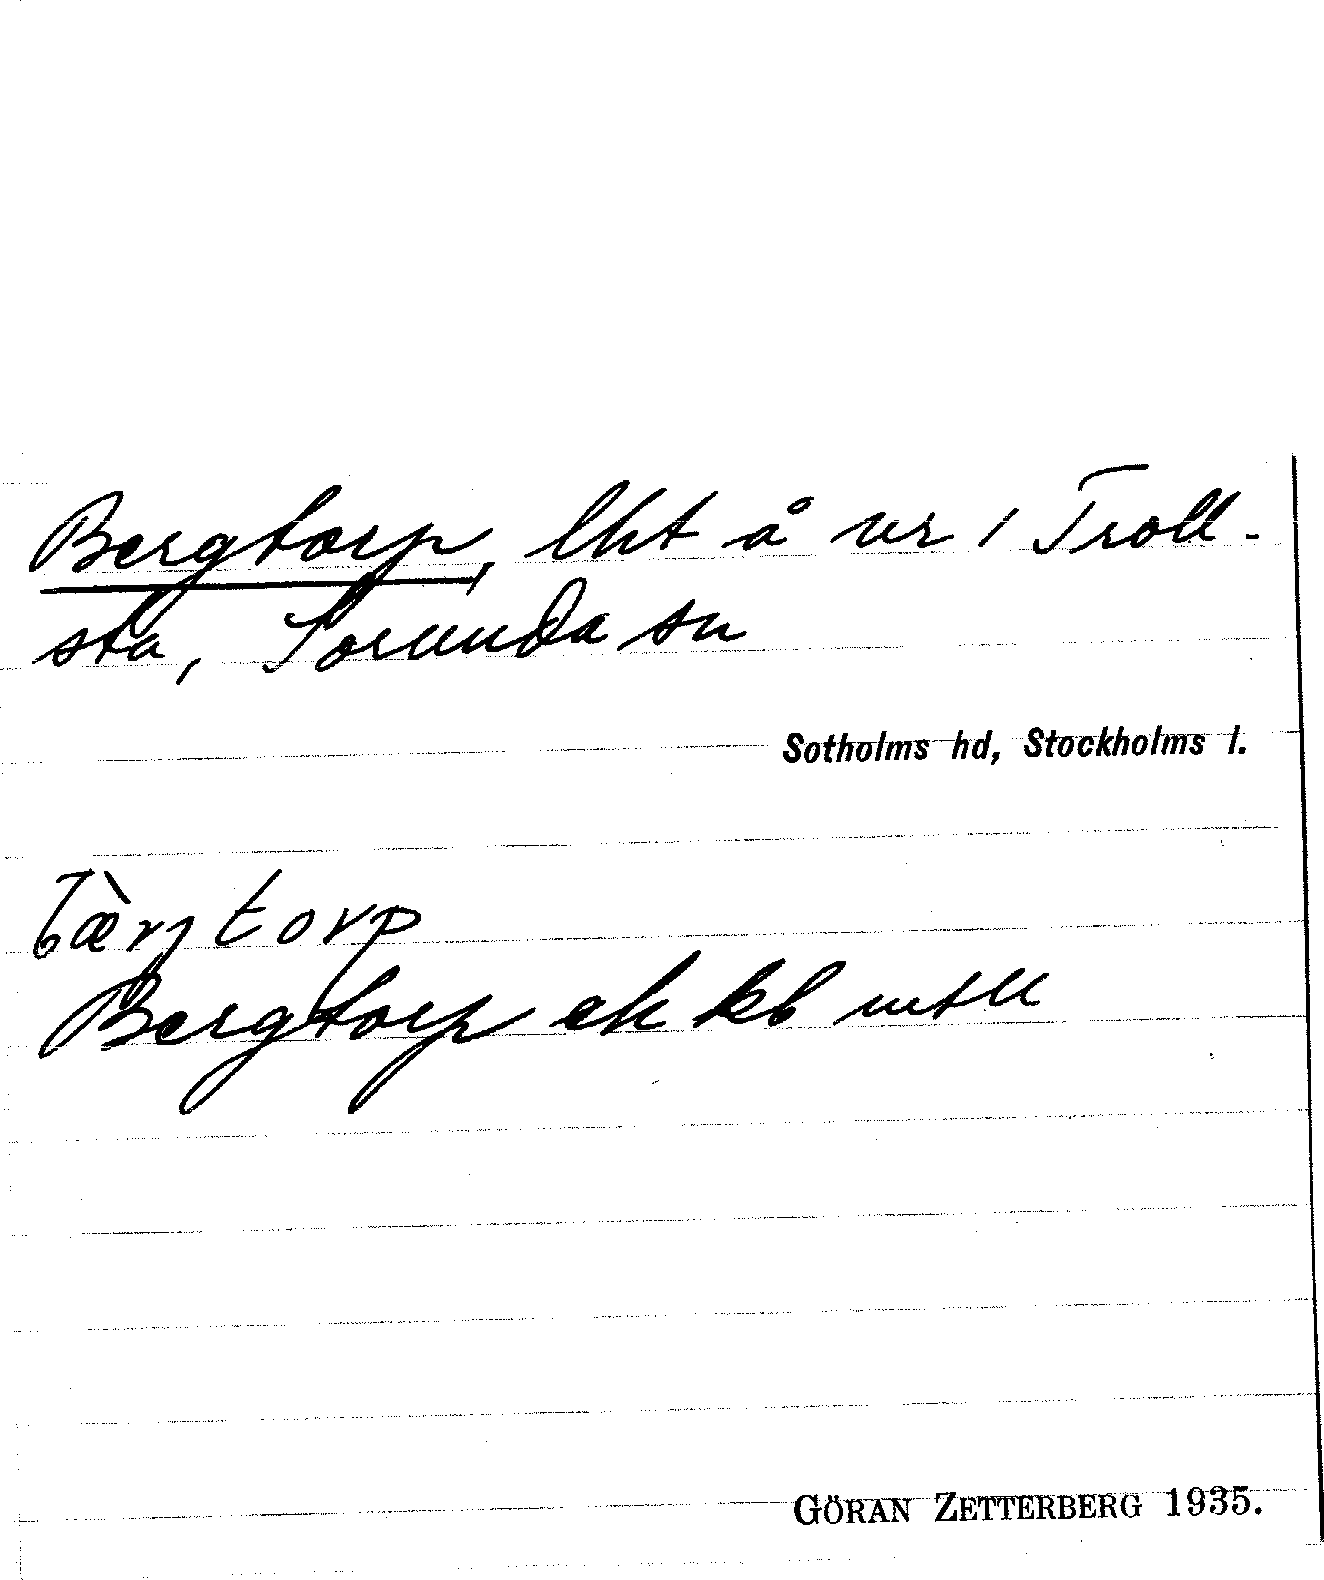 Bergtorp, lht å nr 1 Troll-
sta, Sorunda sn
Sotholms hd, Stockholms l.
bærjtorp
Bergtorp ek kb mtll
GÖRAN ZETTERBERG 1935.